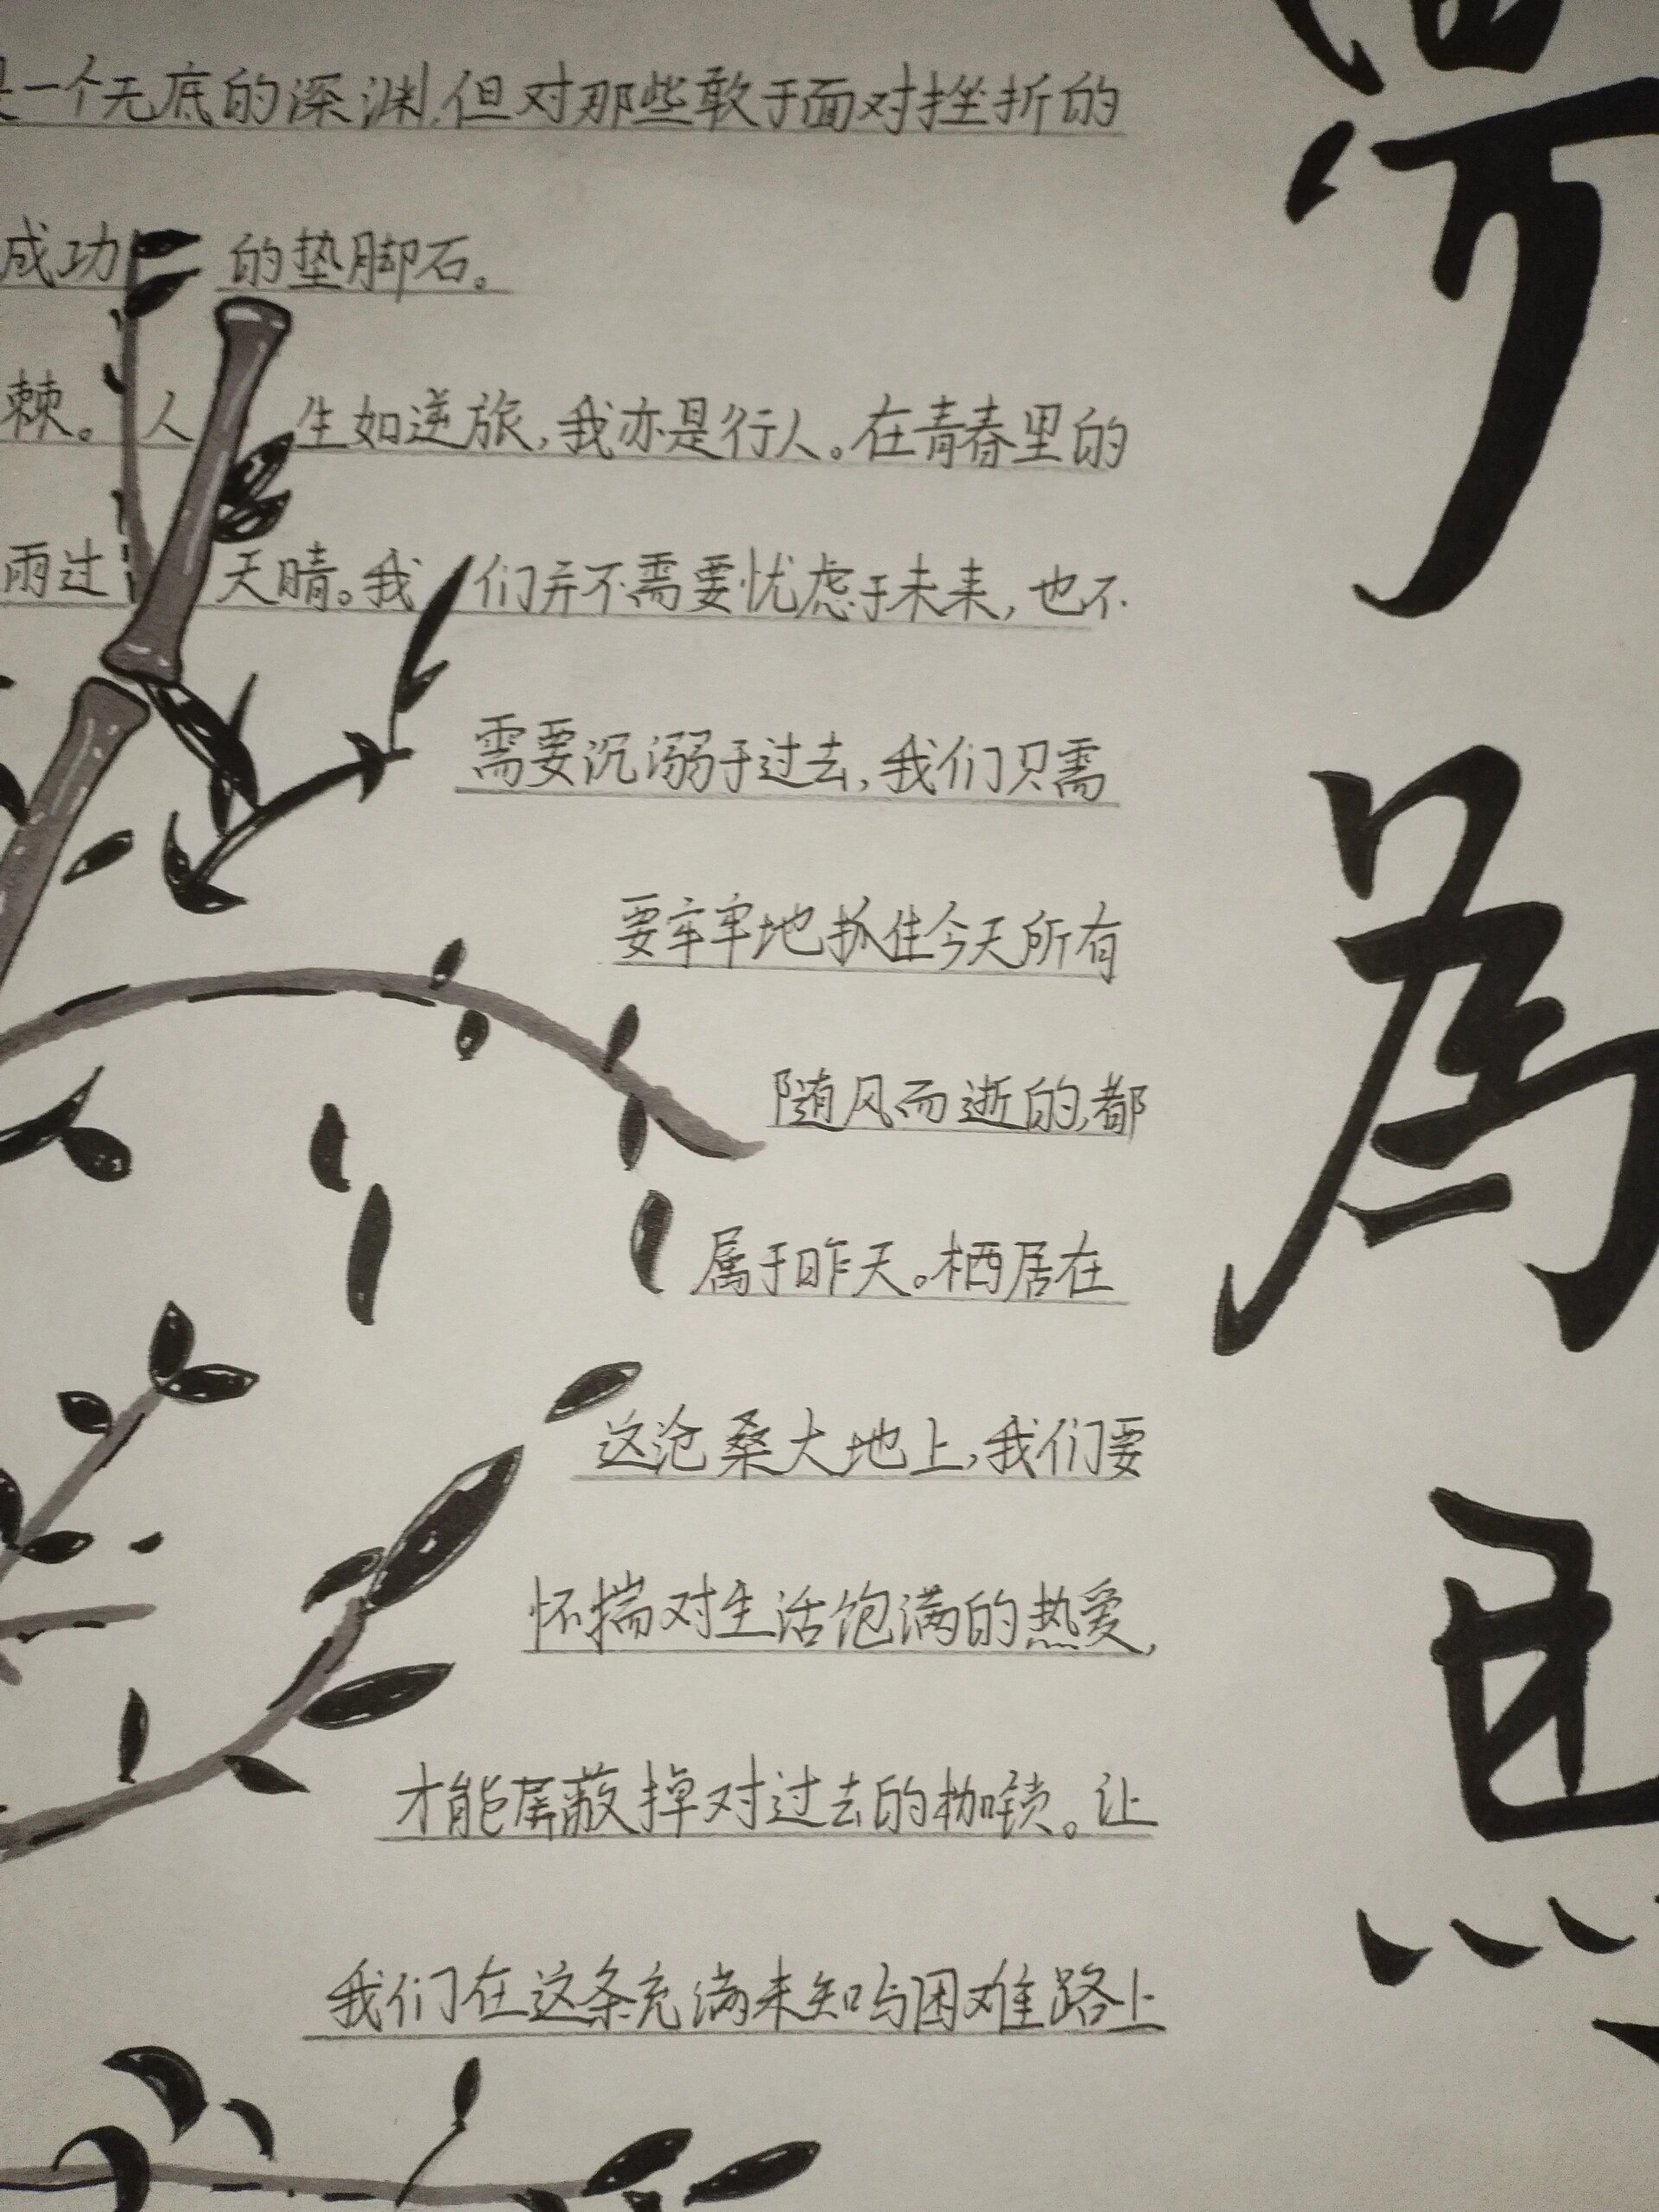 一个无底的深渊,但对那些敢于面对挫折的
成功的垫脚石。
棘。人生如逆旅,我亦是行人。在青春里的
雨过天晴。我们并不需要忧虑于未来,也不
需要沉溺于过去,我们只需
要牢牢地抓住今天所有
随风而逝的,都
属于昨天。栖居在
这沧桑大地上,我们要
怀揣对生活饱满的热爱,
才能屏蔽掉对过去的枷锁。让
我们在这条充满未知与困难路上
為